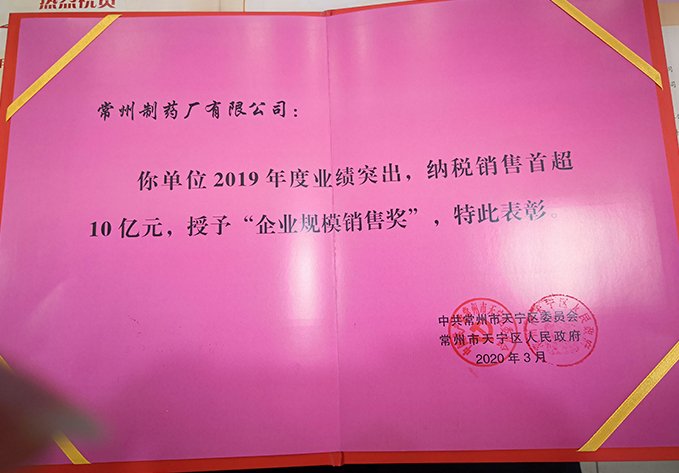 热烈祝贺
常州制药厂有限公司：
你单位2019年度业绩突出，纳税销售首超
10亿元，授予“企业规模销售奖”，特此表彰。
中共常州市天宁区委员会
常州市天宁区人民政府
2020年3月